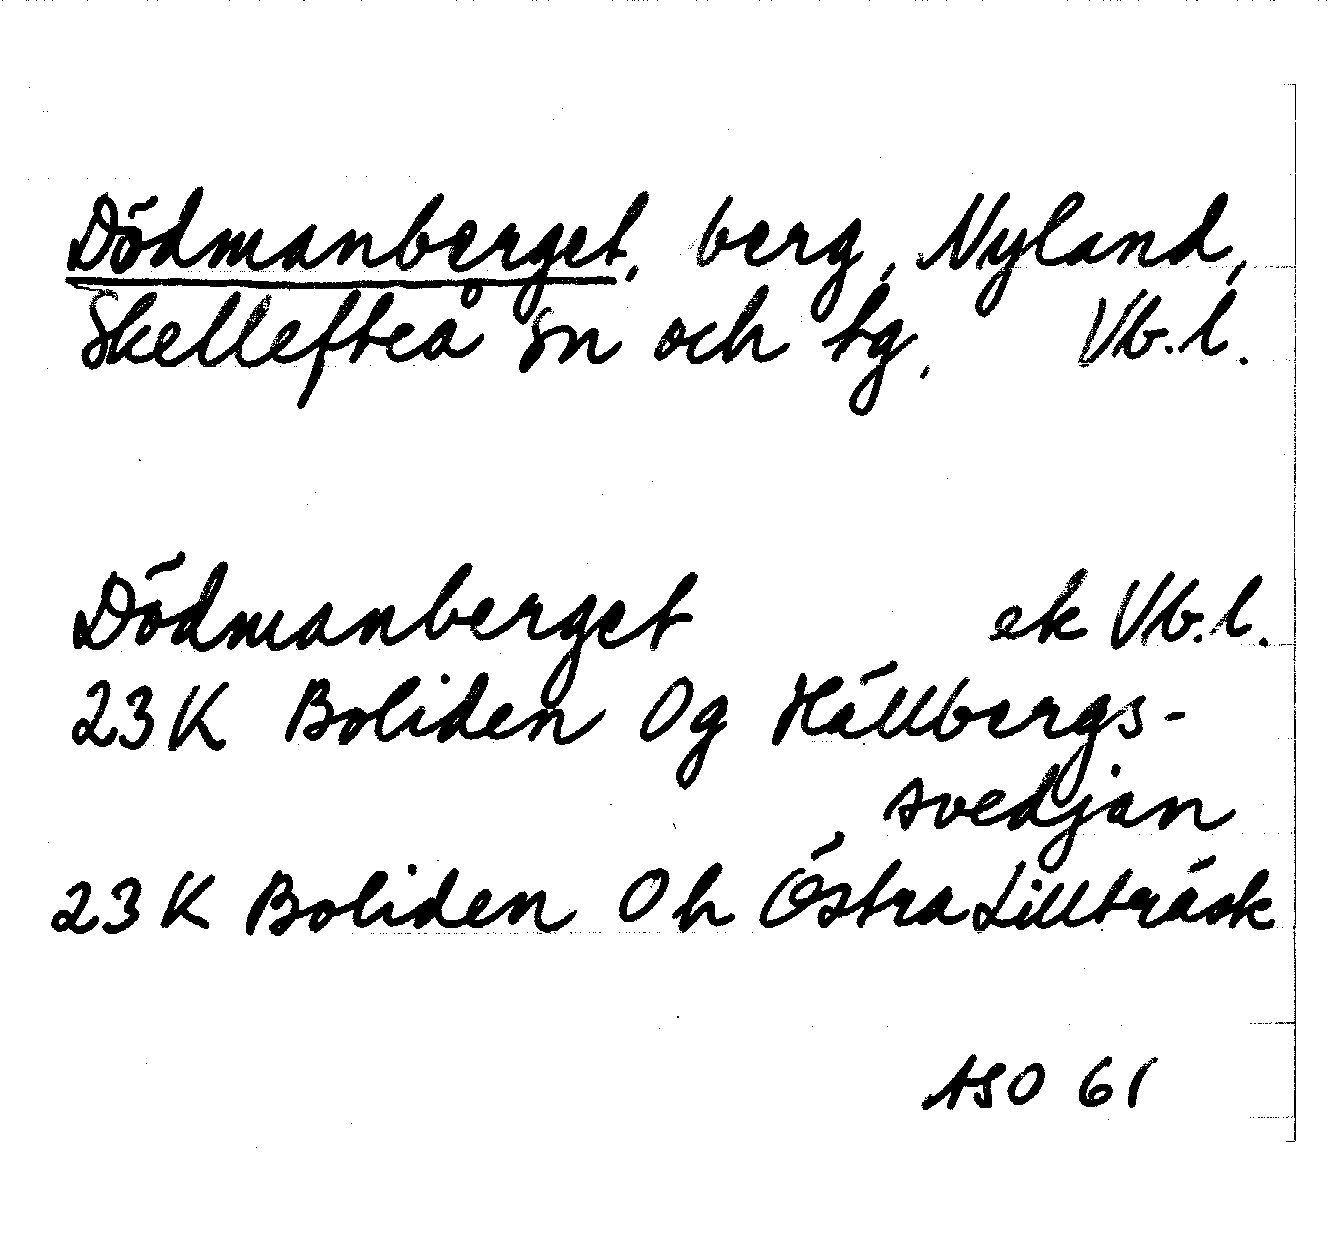 Dödmanberget, berg, Nyland,
Skellefteå sn och tg, Vb.l.
Dödmanberget ek Vb.l.
23K Boliden 0g Hällbergs-
svedjan
23K Boliden 0h Östra Lillträsk
ASO 61